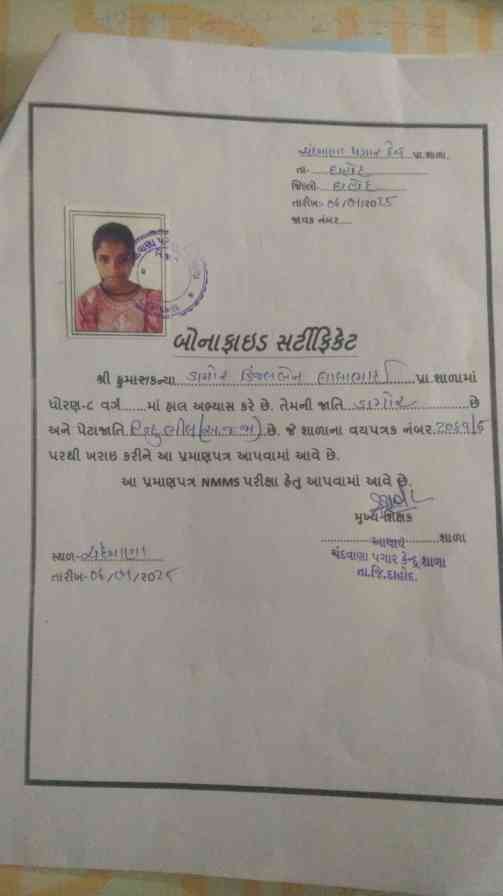 ચંદવાણા પગાર કેન્દ્ર પ્રા.શાળા.
તા- દાહોદ
જિલ્લો- દાહોદ
તારીખ:- 06/01/2025
જાવક નંબર
બોનાફાઇડ સર્ટીફિકેટ
શ્રી કુમાર/કન્યા ડામોર લાલાભાઈ પ્રા.શાળામાં
ધોરણ-૮ વર્ગ ......માં હાલ અભ્યાસ કરે છે. તેમની જાતિ ડામોર છે
અને પેટાજાતિ હિન્દુ ભીલ (અ.જ.જા) છે. જે શાળાના વયપત્રક નંબર
પરથી ખરાઇ કરીને આ પ્રમાણપત્ર આપવામાં આવે છે.
આ પ્રમાણપત્ર NMMS પરીક્ષા હેતુ આપવામાં આવે છે.
મુખ્ય શિક્ષક
આચાર્ય શાળા
ચંદવાણા પગાર કેન્દ્ર શાળા
તા.જિ.દાહોદ.
સ્થળ- ચંદવાણા
તારીખ- 06/01/2025